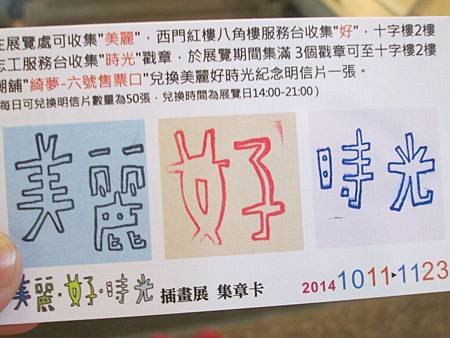 在展覽處可收集"美麗"，西門紅樓八角樓服務台收集"好"，十字樓2樓
志工服務台收集"時光"戳章，於展覽期間集滿 3個戳章可至十字樓2樓
"綺夢-六號售票口"兌換美麗好時光紀念明信片一張。
每日可兌換明信片數量為50張，兌換時間為展覽日14:00-21:00 )
美麗 好 時光
美麗·好·時光 插畫展 集章卡 2014 1011-1123